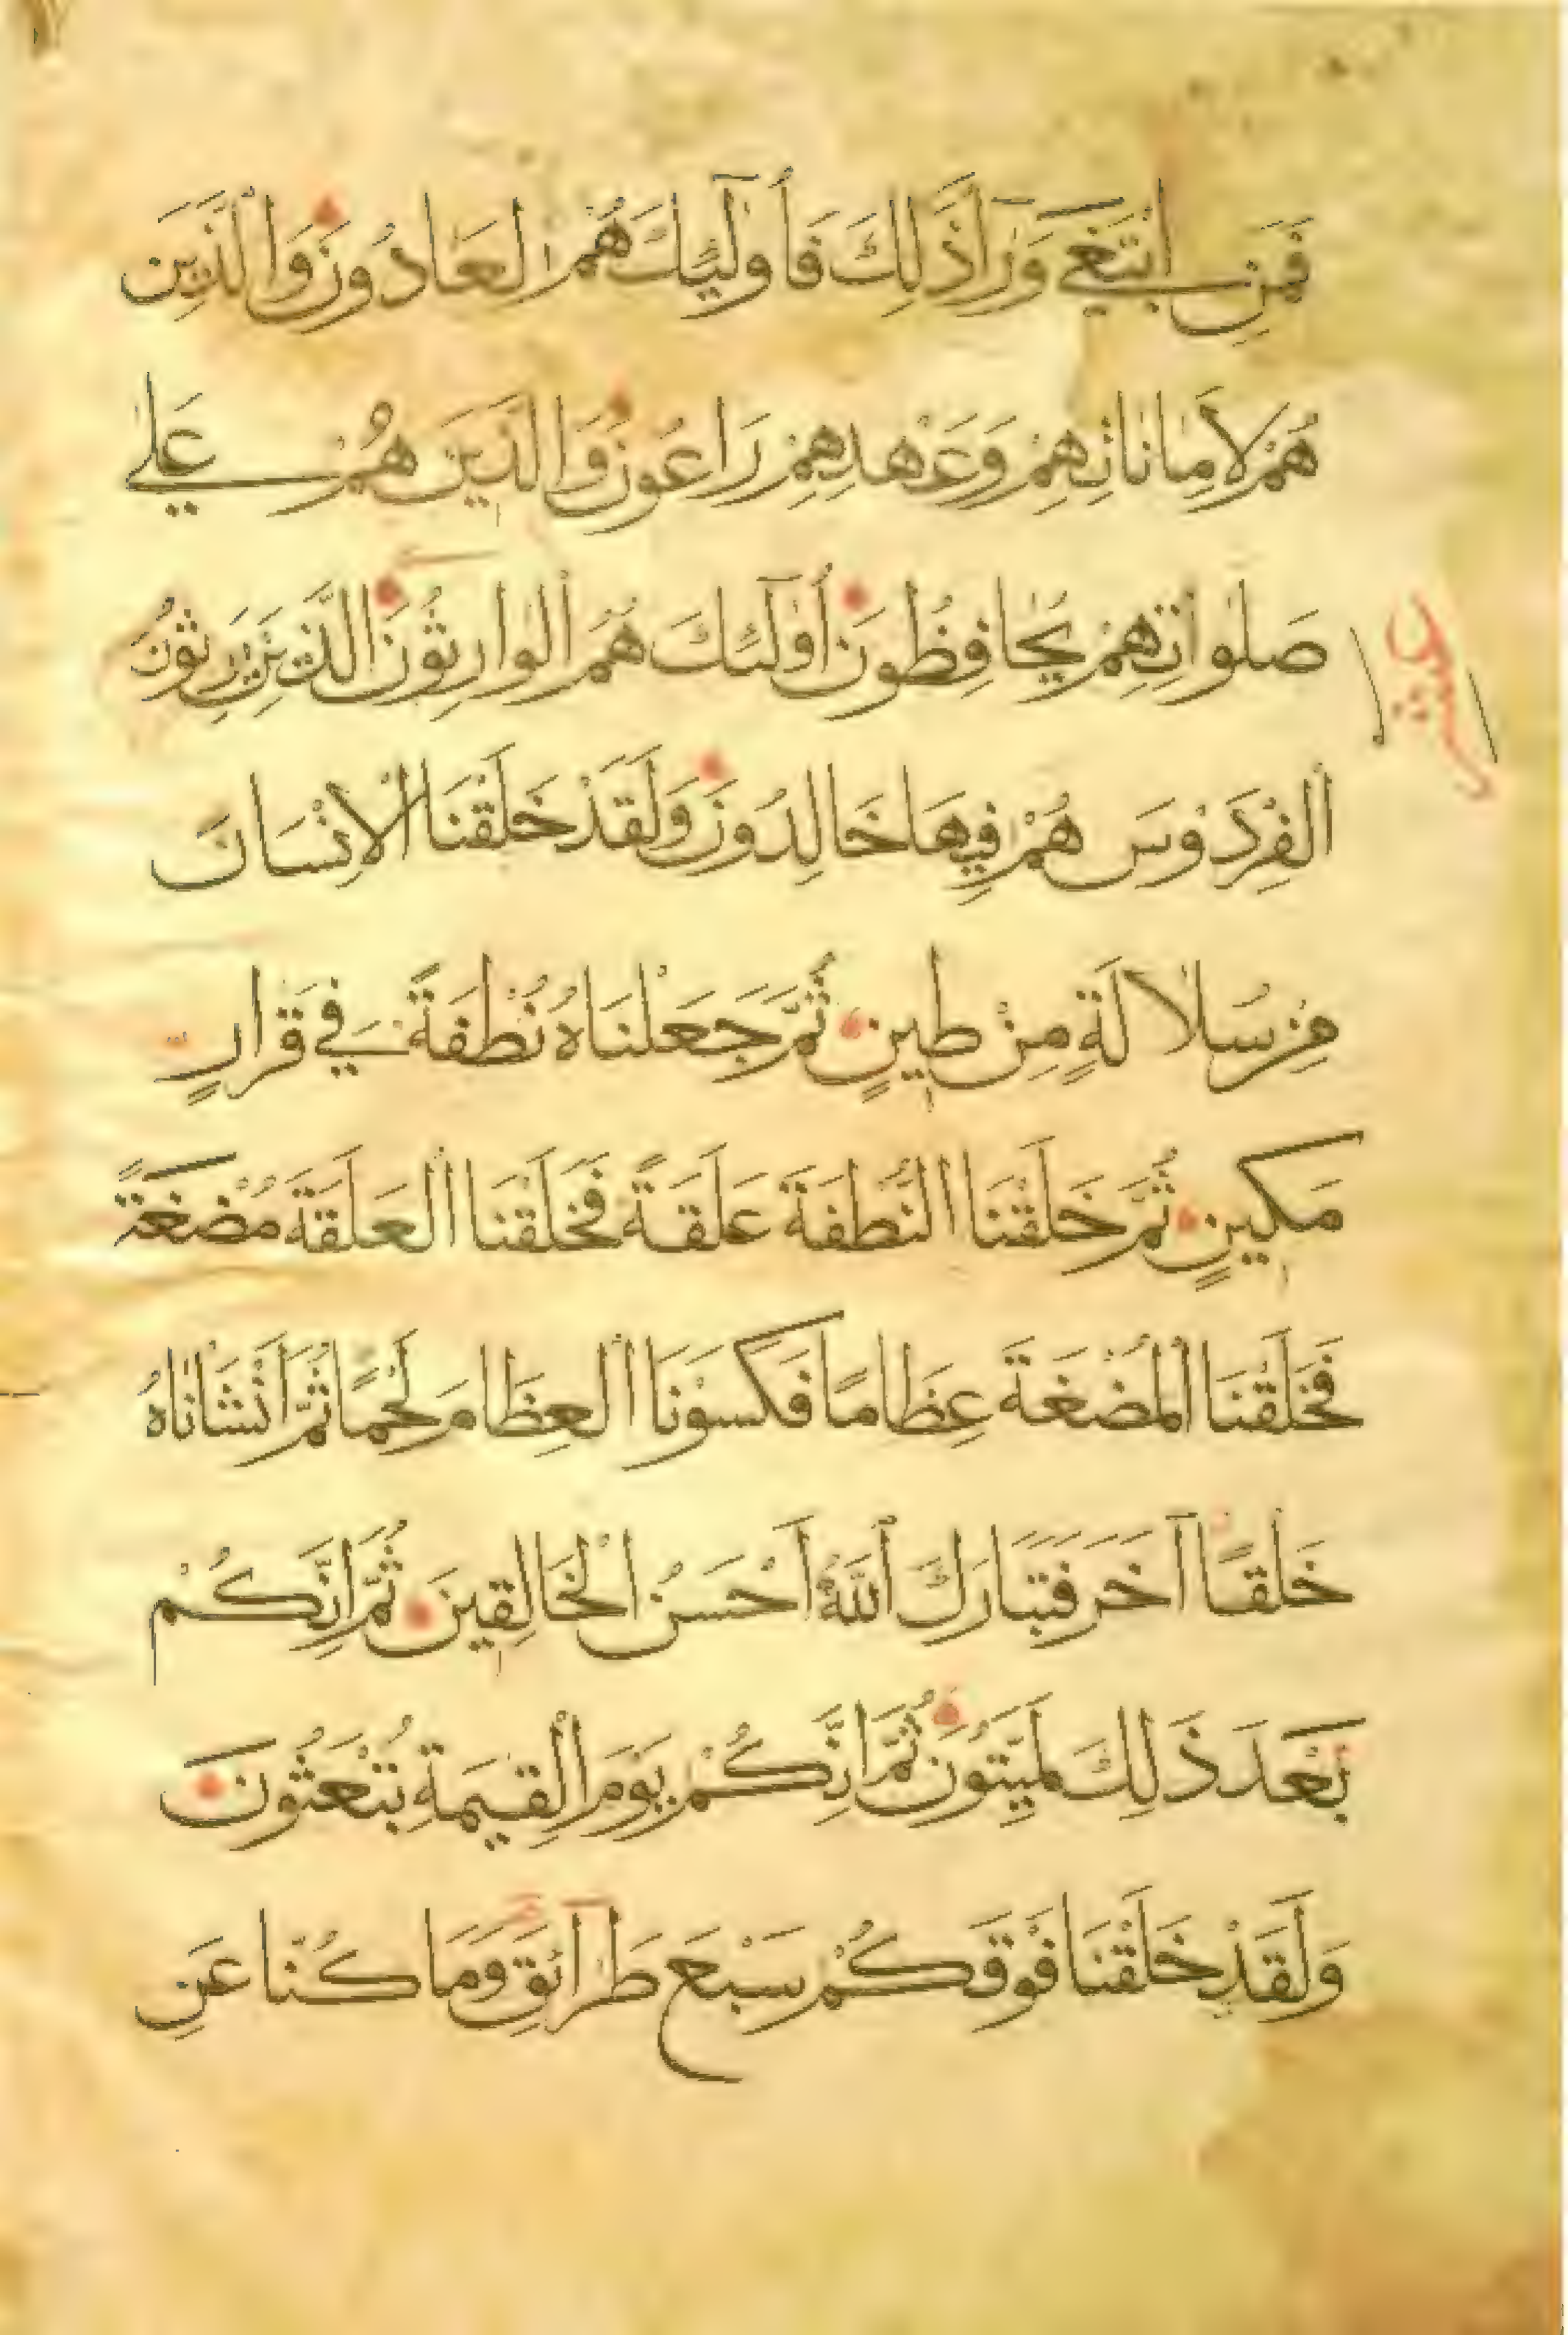 فَمَنِ ابْتَغَى وَرَآ ذَلِكَ فَأُولَٓئِكَ هُمُ الْعَادُونَ وَالَّذِينَ
هُمْ لِأَمَانَاتِهِمْ وَعَهْدِهِمْ رَاعُونَ وَالَّذِينَ هُمْ عَلَى
صَلَوَاتِهِمْ يُحَافِظُونَ أُولَٓئِكَ هُمُ الْوَارِثُونَ الَّذِينَ يَرِثُونَ
الْفِرْدَوْسَ هُمْ فِيهَا خَالِدُونَ وَلَقَدْ خَلَقْنَا الْإِنْسَانَ
مِنْ سُلَالَةٍ مِنْ طِينٍ ثُمَّ جَعَلْنَاهُ نُطْفَةً فِي قَرَارٍ
مَكِينٍ ثُمَّ خَلَقْنَا النُّطْفَةَ عَلَقَةً فَخَلَقْنَا الْعَلَقَةَ مُضْغَةً
فَخَلَقْنَا الْمُضْغَةَ عِظَامًا فَكَسَوْنَا الْعِظَامَ لَحْمًا ثُمَّ أَنْشَأْنَاهُ
خَلْقًا آخَرَ فَتَبَارَكَ اللَّهُ أَحْسَنُ الْخَالِقِينَ ثُمَّ إِنَّكُمْ
بَعْدَ ذَلِكَ لَمَيِّتُونَ ثُمَّ إِنَّكُمْ يَوْمَ الْقِيَمَةِ تُبْعَثُونَ
وَلَقَدْ خَلَقْنَا فَوْقَكُمْ سَبْعَ طَرَآئِقَ وَمَا كُنَّا عَنِ